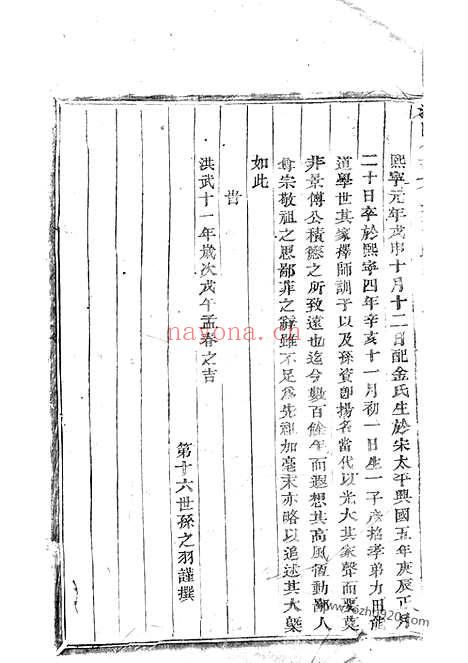 熙寧元年戊申十月十二日配金氏生於宋太平興國五年庚辰正月
二十日卒於熙寧四年辛亥十一月初一日生一子彥格孝弟力田能
道學世其家擇師訓子以及孫資卽揚名當代以光大其家聲而要莫
非景傳公積德之所致遠也迄今數百餘年而遐想其高風恆動鄙人
尊宗敬祖之思鄙菲之辭雖不足爲先祖加毫末亦略以追述其大槩
如此
旹
洪武十一年歲次戊午孟春之吉
第十六世孫之羽謹撰
nayona.cn